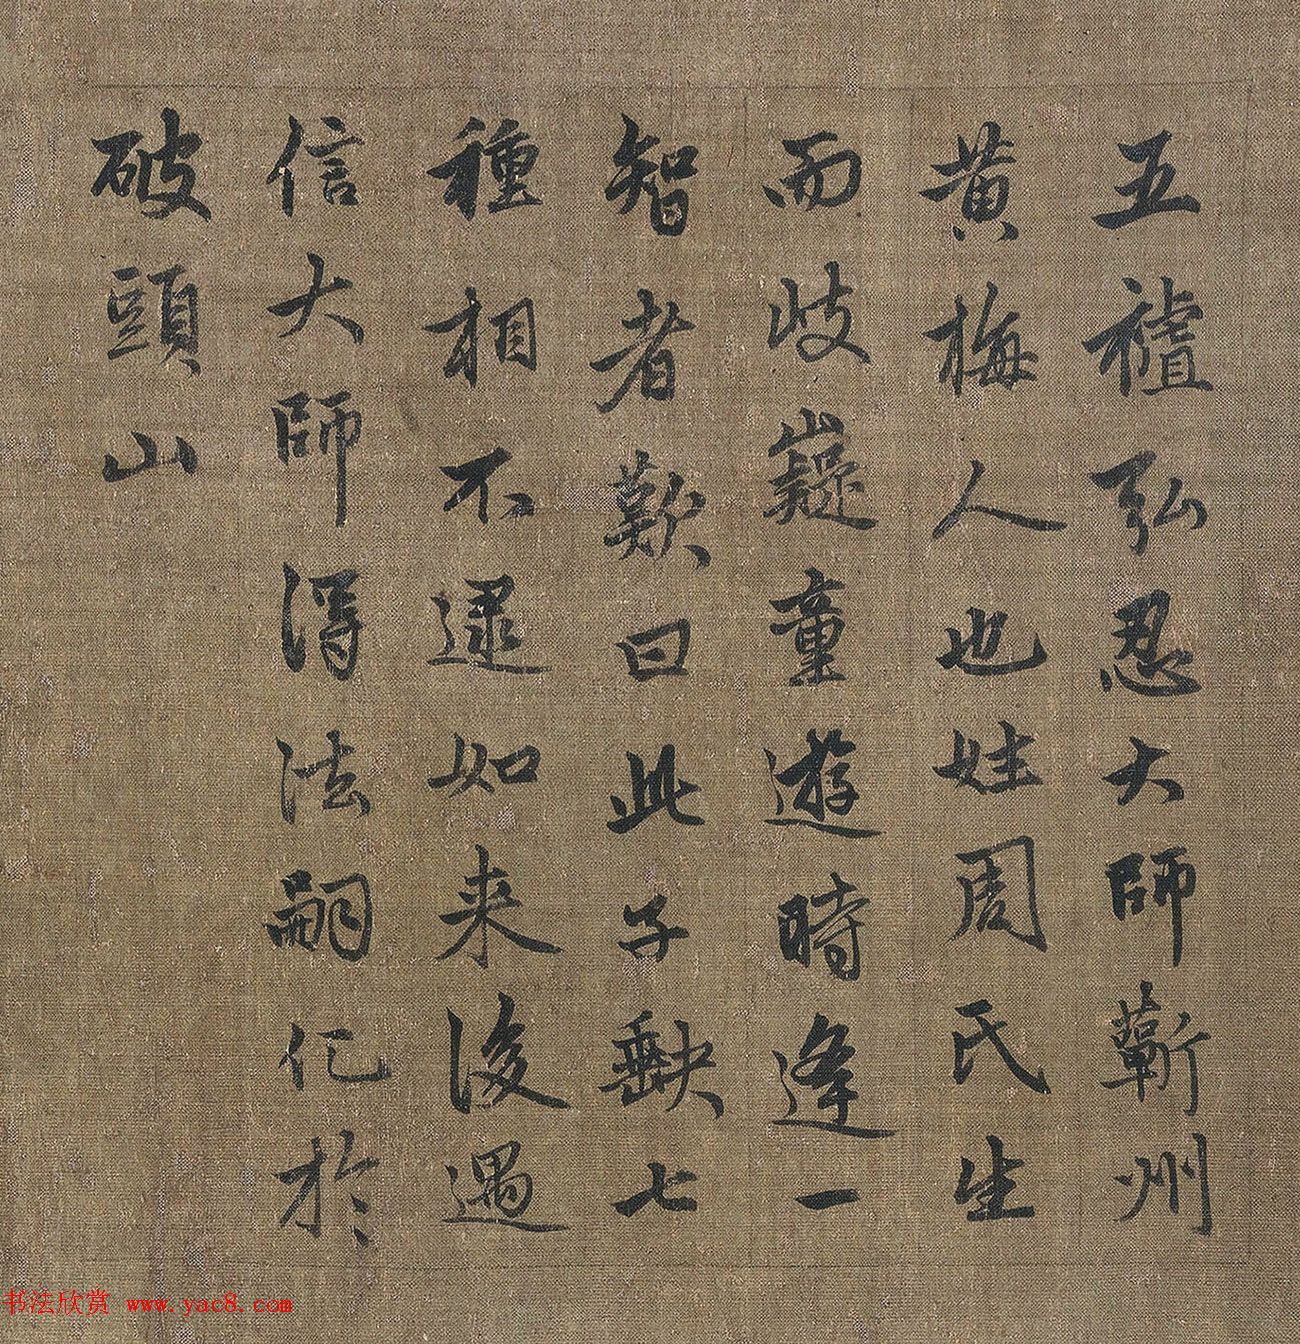 五禮弘忍大師蘄州
黄梅人也姓周氏生
而歧嶷童遊時逢一
智者歎曰此子缺七
種相不逮如来後遇
信大師得法嗣化於
破頭山
书法欣赏 www.yac8.com